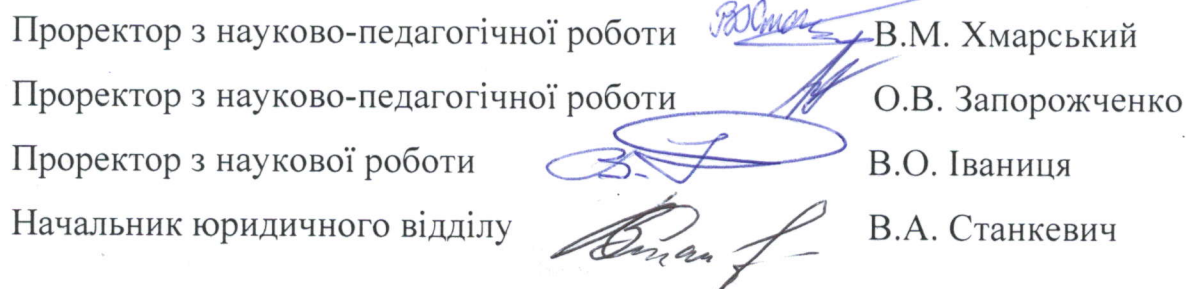 Проректор з науково-педагогічної роботи В.М. Хмарський
Проректор з науково-педагогічної роботи О.В. Запорожченко
Проректор з наукової роботи В.О. Іваниця
Начальник юридичного відділу В.А. Станкевич